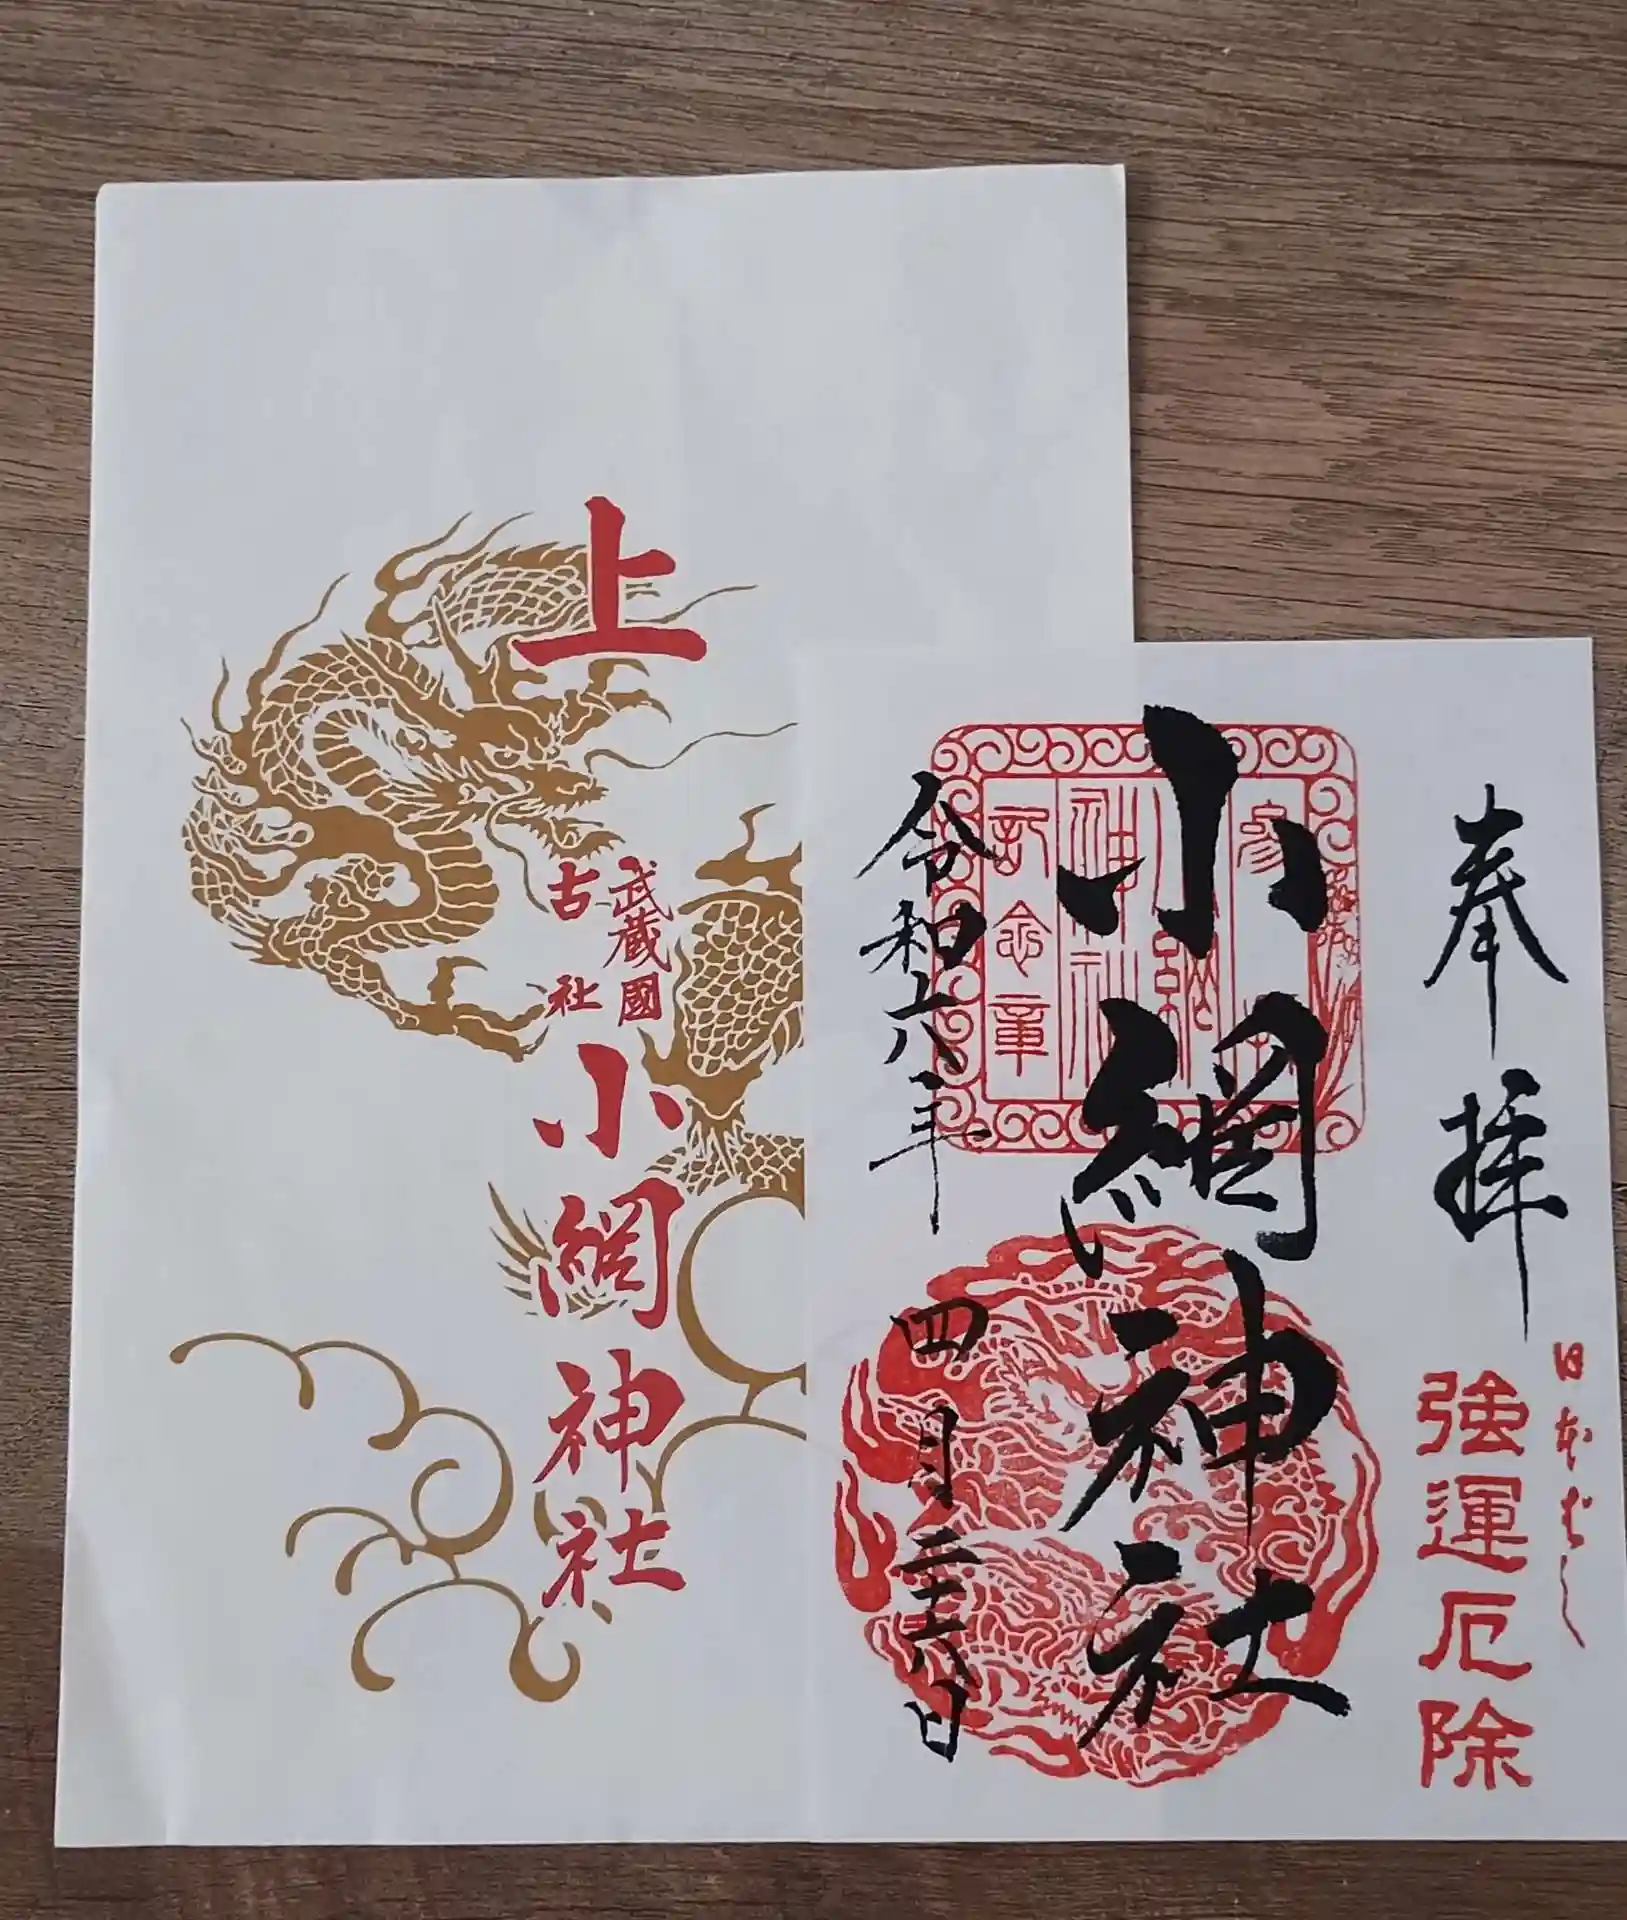 上
武蔵國
古社
小網神社
奉拝
日本ばし
強運厄除
小網神社
参拝
小網
神社
記念章
令和六年
四月二十六日